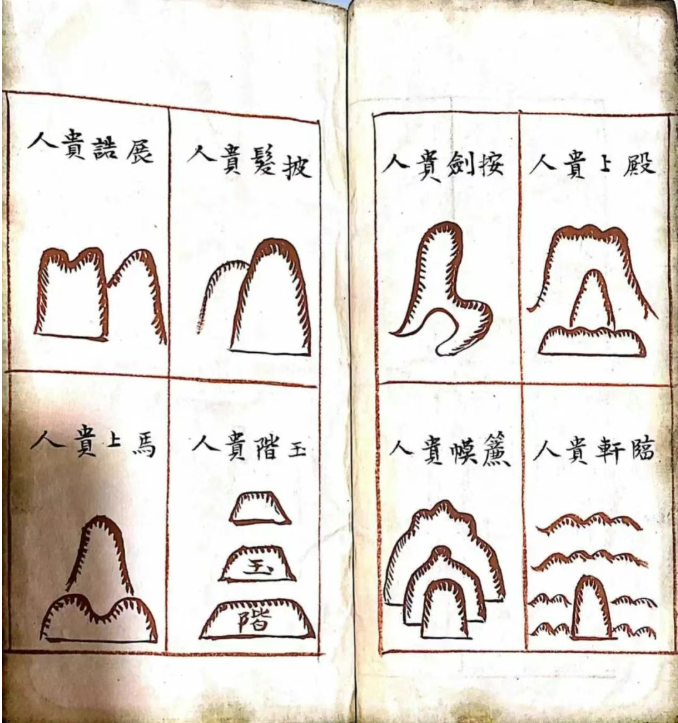 殿上貴人
按劍貴人
臨軒貴人
簾幙貴人
披髮貴人
展誥貴人
玉階貴人
玉
階
馬上貴人